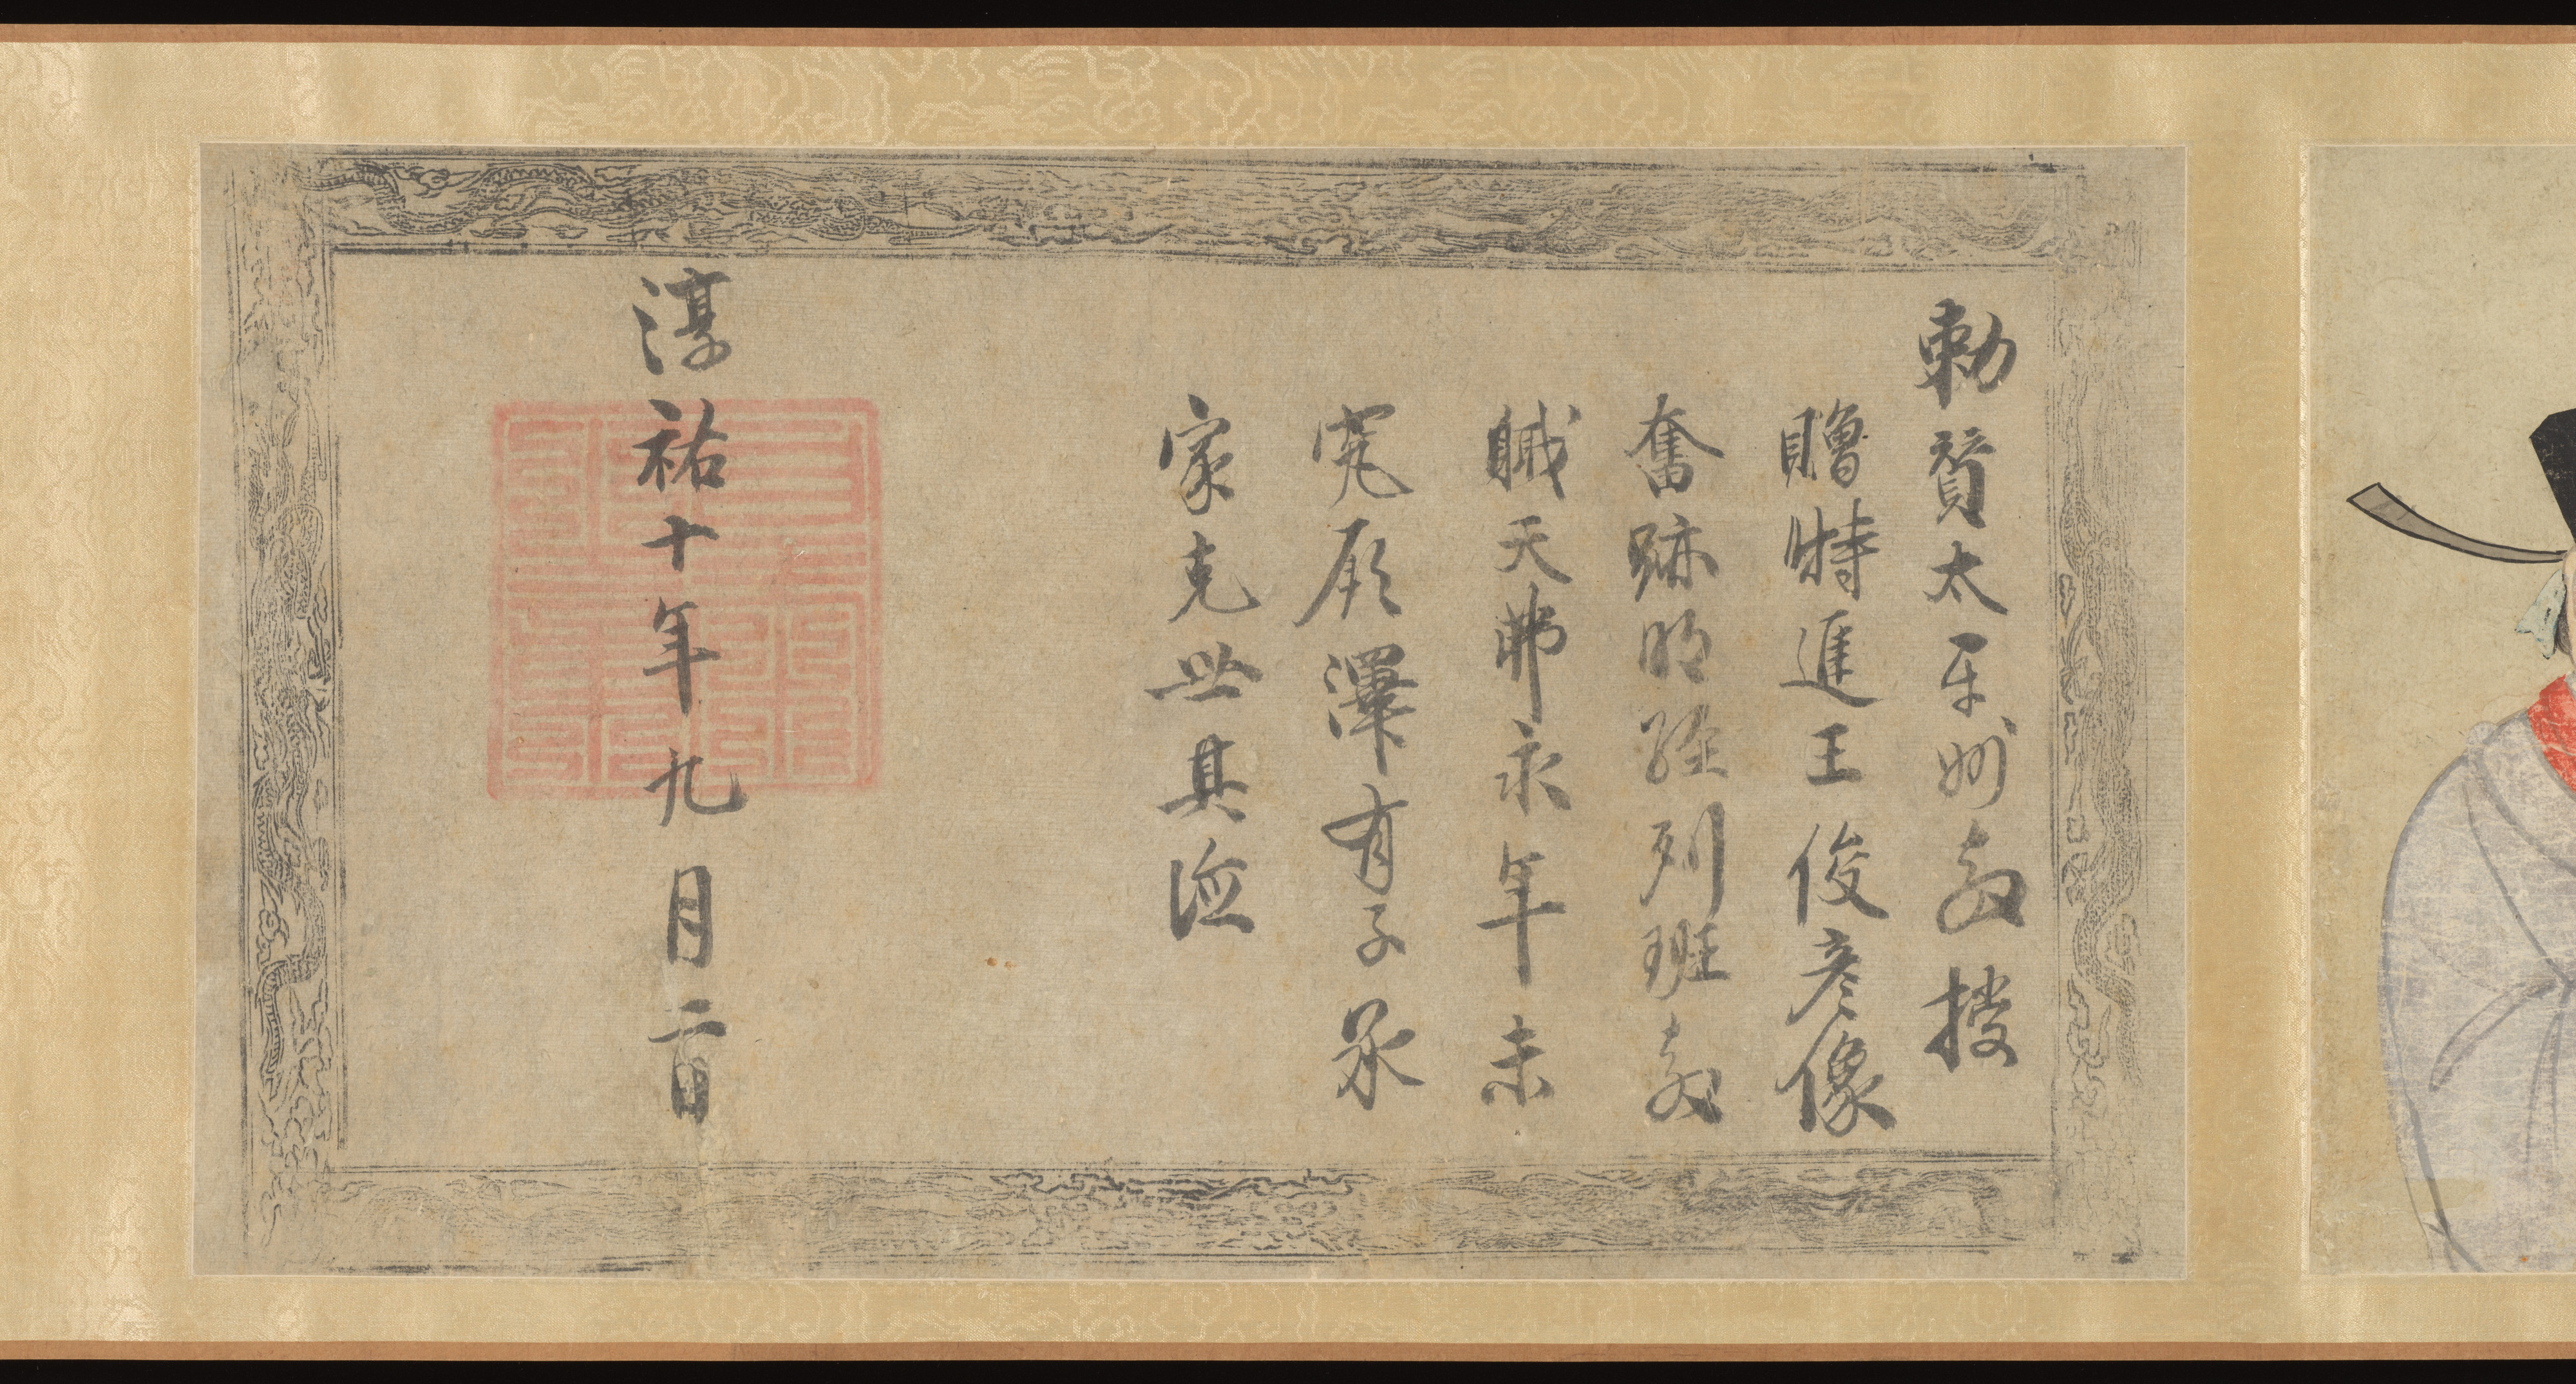 勅賛太平州教授
贈特進王俊彦像
奮跡明經列班教
職天弗永年未
究厥澤有子承
家克世其德
淳祐十年九月二日